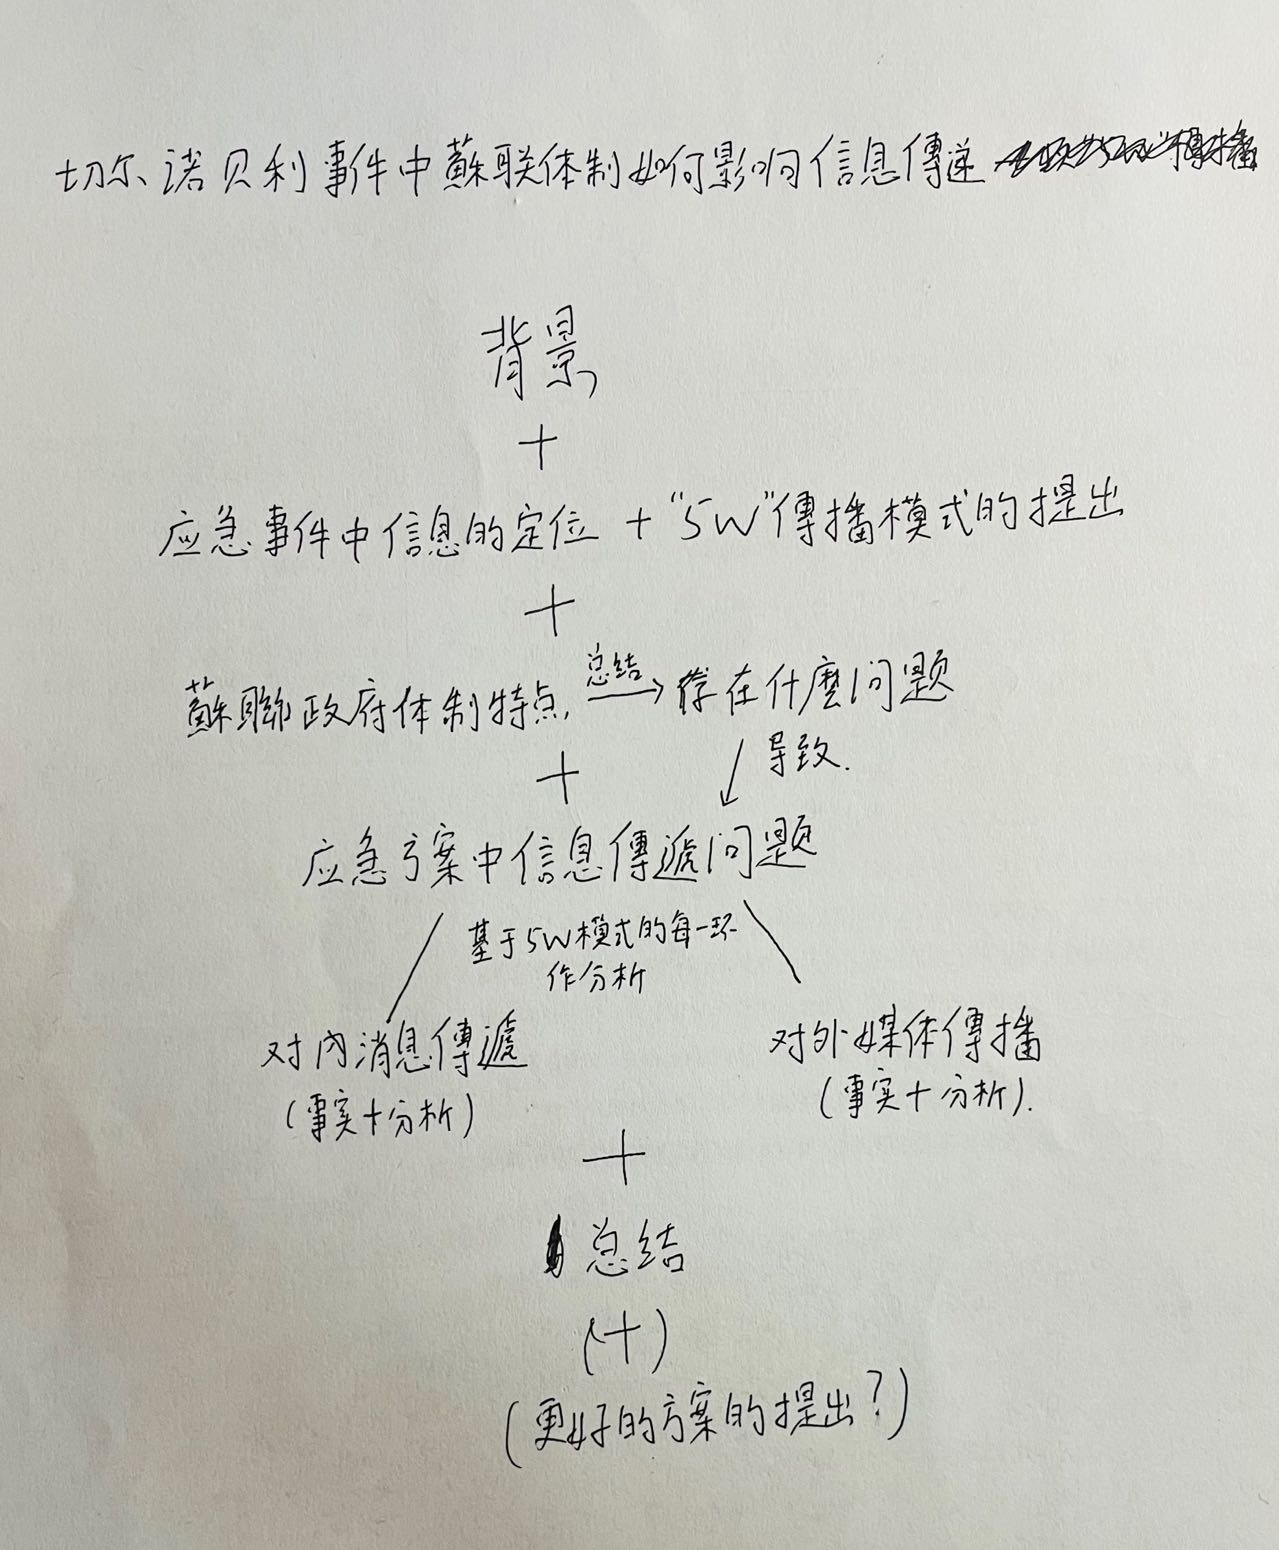 切尔诺贝利事件中蘇联体制如何影响信息傳递
背景
+
应急事件中信息的定位 + “5W”傳播模式的提出
+
蘇聯政府体制特点, 总结 → 存在什麼问题
+ ↙ 导致.
应急方案中信息傳遞问题
基于5W模式的每一环
作分析
对内消息傳遞 对外媒体傳播
(事实+分析) (事实+分析).
+
总结
(+)
(更好的方案的提出?)